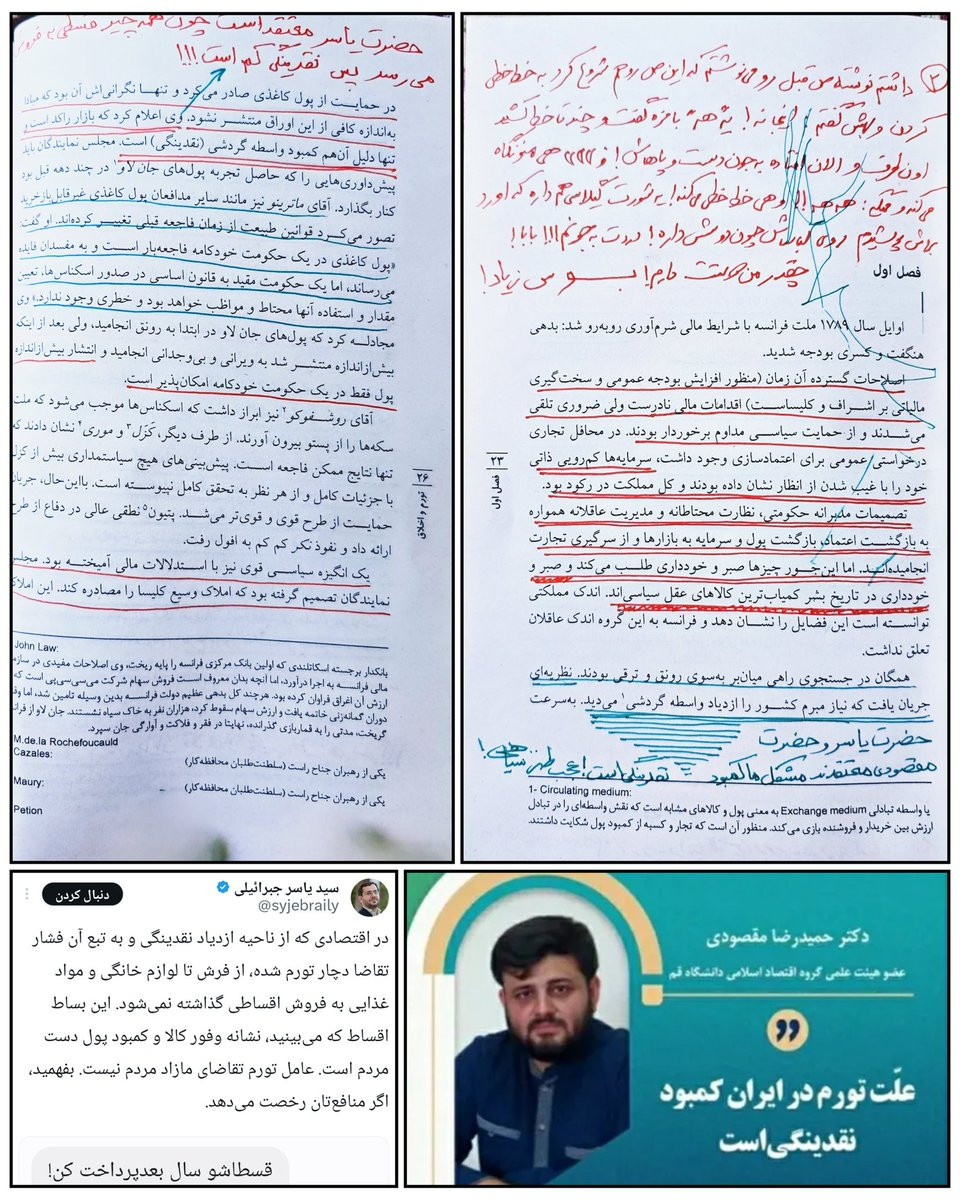 داشتم نوشته ص قبل رو می‌نوشتم که این ص رو هم شروع کرد به خط خطی
کردن و بهش گفتم
چقدر من دوستت دارم! بوس زیاد!
فصل اول
اوایل سال ۱۷۸۹ ملت فرانسه با شرایط مالی شرم‌آوری روبه‌رو شد: بدهی
هنگفت و کسری بودجه شدید.
اصلاحات گسترده آن زمان (منظور افزایش بودجه عمومی و سخت‌گیری
مالیاتی بر اشراف و کلیساست) اقدامات مالی نادرست ولی ضروری تلقی
می‌شدند و از حمایت سیاسی مداوم برخوردار بودند. در محافل تجاری
درخواستی عمومی برای اعتمادسازی وجود داشت، سرمایه‌ها کم‌رویی ذاتی
خود را با غیب شدن از انظار نشان داده بودند و کل مملکت در رکود بود.
تصمیمات مدبرانه حکومتی، نظارت محتاطانه و مدیریت عاقلانه همواره
به بازگشت اعتماد، بازگشت پول و سرمایه به بازارها و از سرگیری تجارت
انجامیده‌اند. اما این جور چیزها صبر و خودداری طلب می‌کند و صبر و
خودداری در تاریخ بشر کمیاب‌ترین کالاهای عقل سیاسی‌اند. اندک مملکتی
توانسته است این فضایل را نشان دهد و فرانسه به این گروه اندک عاقلان
تعلق نداشت.
همگان در جستجوی راهی میان‌بر به‌سوی رونق و ترقی بودند. نظریه‌ای
جریان یافت که نیاز مبرم کشور را ازدیاد واسطه گردشی۱ می‌دید. به‌سرعت
حضرت یاسر و حضرت
مقصودی معتقدند مشکل ما کمبود نقدینگی است! عجب طنز سیاهی!
1- Circulating medium:
یا واسطه تبادلی Exchange medium به معنی پول و کالاهای مشابه است که نقش واسطه‌ای را در تبادل
ارزش بین خریدار و فروشنده بازی می‌کند. منظور آن است که تجار و کسبه از کمبود پول شکایت داشتند.
۲۳
فصل اول
حضرت یاسر معتقد است چون همه چیز قسطی به فروش
می‌رسد پس نقدینگی کم است!!!
در حمایت از پول کاغذی صادر می‌کرد و تنها نگرانی‌اش آن بود که مبادا
به‌اندازه کافی از این اوراق منتشر نشود. وی اعلام کرد که بازار راکد است و
تنها دلیل آن‌هم کمبود واسطه گردشی (نقدینگی) است. مجلس نمایندگان باید
پیش‌داوری‌هایی را که حاصل تجربه پول‌های جان لاو۱ در چند دهه قبل بود
کنار بگذارد. آقای ماترینو نیز مانند سایر مدافعان پول کاغذی غیرقابل‌بازخرید
تصور می‌کرد قوانین طبیعت از زمان فاجعه قبلی تغییر کرده‌اند. او گفت
«پول کاغذی در یک حکومت خودکامه فاجعه‌بار است و به مفسدان فایده
می‌رساند، اما یک حکومت مقید به قانون اساسی در صدور اسکناس‌ها، تعیین
مقدار و استفاده آنها محتاط و مواظب خواهد بود و خطری وجود ندارد.» وی
مجادله کرد که پول‌های جان لاو در ابتدا به رونق انجامید، ولی بعد از اینکه
بیش‌ازاندازه منتشر شد به ویرانی و بی‌وجدانی انجامید و انتشار بیش‌ازاندازه
پول فقط در یک حکومت خودکامه امکان‌پذیر است.
آقای روشفوکو۲ نیز ابراز داشت که اسکناس‌ها موجب می‌شود که ملت
سکه‌ها را از پستو بیرون آورند. از طرف دیگر، کزل۳ و موری۴ نشان دادند که
تنها نتایج ممکن فاجعه است. پیش‌بینی‌های هیچ سیاستمداری بیش از کزل
با جزئیات کامل و از هر نظر به تحقق کامل نپیوسته است. بااین‌حال، جریان
حمایت از طرح قوی و قوی‌تر می‌شد. پتیون۵ نطقی عالی در دفاع از طرح
ارائه داد و نفوذ نکر کم کم به افول رفت.
یک انگیزه سیاسی قوی نیز با استدلالات مالی آمیخته بود. مجلس
نمایندگان تصمیم گرفته بود که املاک وسیع کلیسا را مصادره کند. این املاک
John Law:
بانکدار برجسته اسکاتلندی که اولین بانک مرکزی فرانسه را پایه ریخت، وی اصلاحات مفیدی در سازمان
مالی فرانسه به اجرا درآورد، اما آنچه بدان معروف است فروش سهام شرکت می‌سی‌سی‌پی است که
ارزش آن اغراق فراوان کرده بود. هرچند کل بدهی عظیم دولت فرانسه بدین وسیله تامین شد، اما
دوران گمانه‌زنی خاتمه یافت و ارزش سهام سقوط کرد، هزاران نفر به خاک سیاه نشستند. جان لاو از فرانسه
گریخت، مدتی را به قماربازی گذرانده، نهایتا در فقر و فلاکت و آوارگی جان سپرد.
M.de.la Rochefoucauld
Cazales:
یکی از رهبران جناح راست (سلطنت‌طلبان محافظه‌کار)
Maury:
یکی از رهبران جناح راست (سلطنت‌طلبان محافظه‌کار)
Petion
۲۶
تورم و اخلاق
دکتر حمیدرضا مقصودی
عضو هیئت علمی گروه اقتصاد اسلامی دانشگاه قم
علّت تورم در ایران کمبود
نقدینگی‌است
سید یاسر جبرائیلی
@syjebraily
دنبال کردن
در اقتصادی که از ناحیه ازدیاد نقدینگی و به تبع آن فشار
تقاضا دچار تورم شده، از فرش تا لوازم خانگی و مواد
غذایی به فروش اقساطی گذاشته نمی‌شود. این بساط
اقساط که می‌بینید، نشانه وفور کالا و کمبود پول دست
مردم است. عامل تورم تقاضای مازاد مردم نیست. بفهمید،
اگر منافع‌تان رخصت می‌دهد.
قسطاشو سال بعدپرداخت کن!